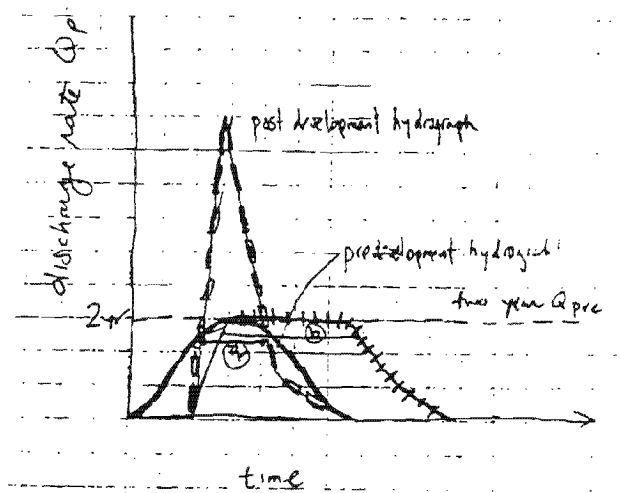 discharge rate Qp
post development hydrograph
predevelopment hydrograph
two year Q pre
2yr
a
b
time